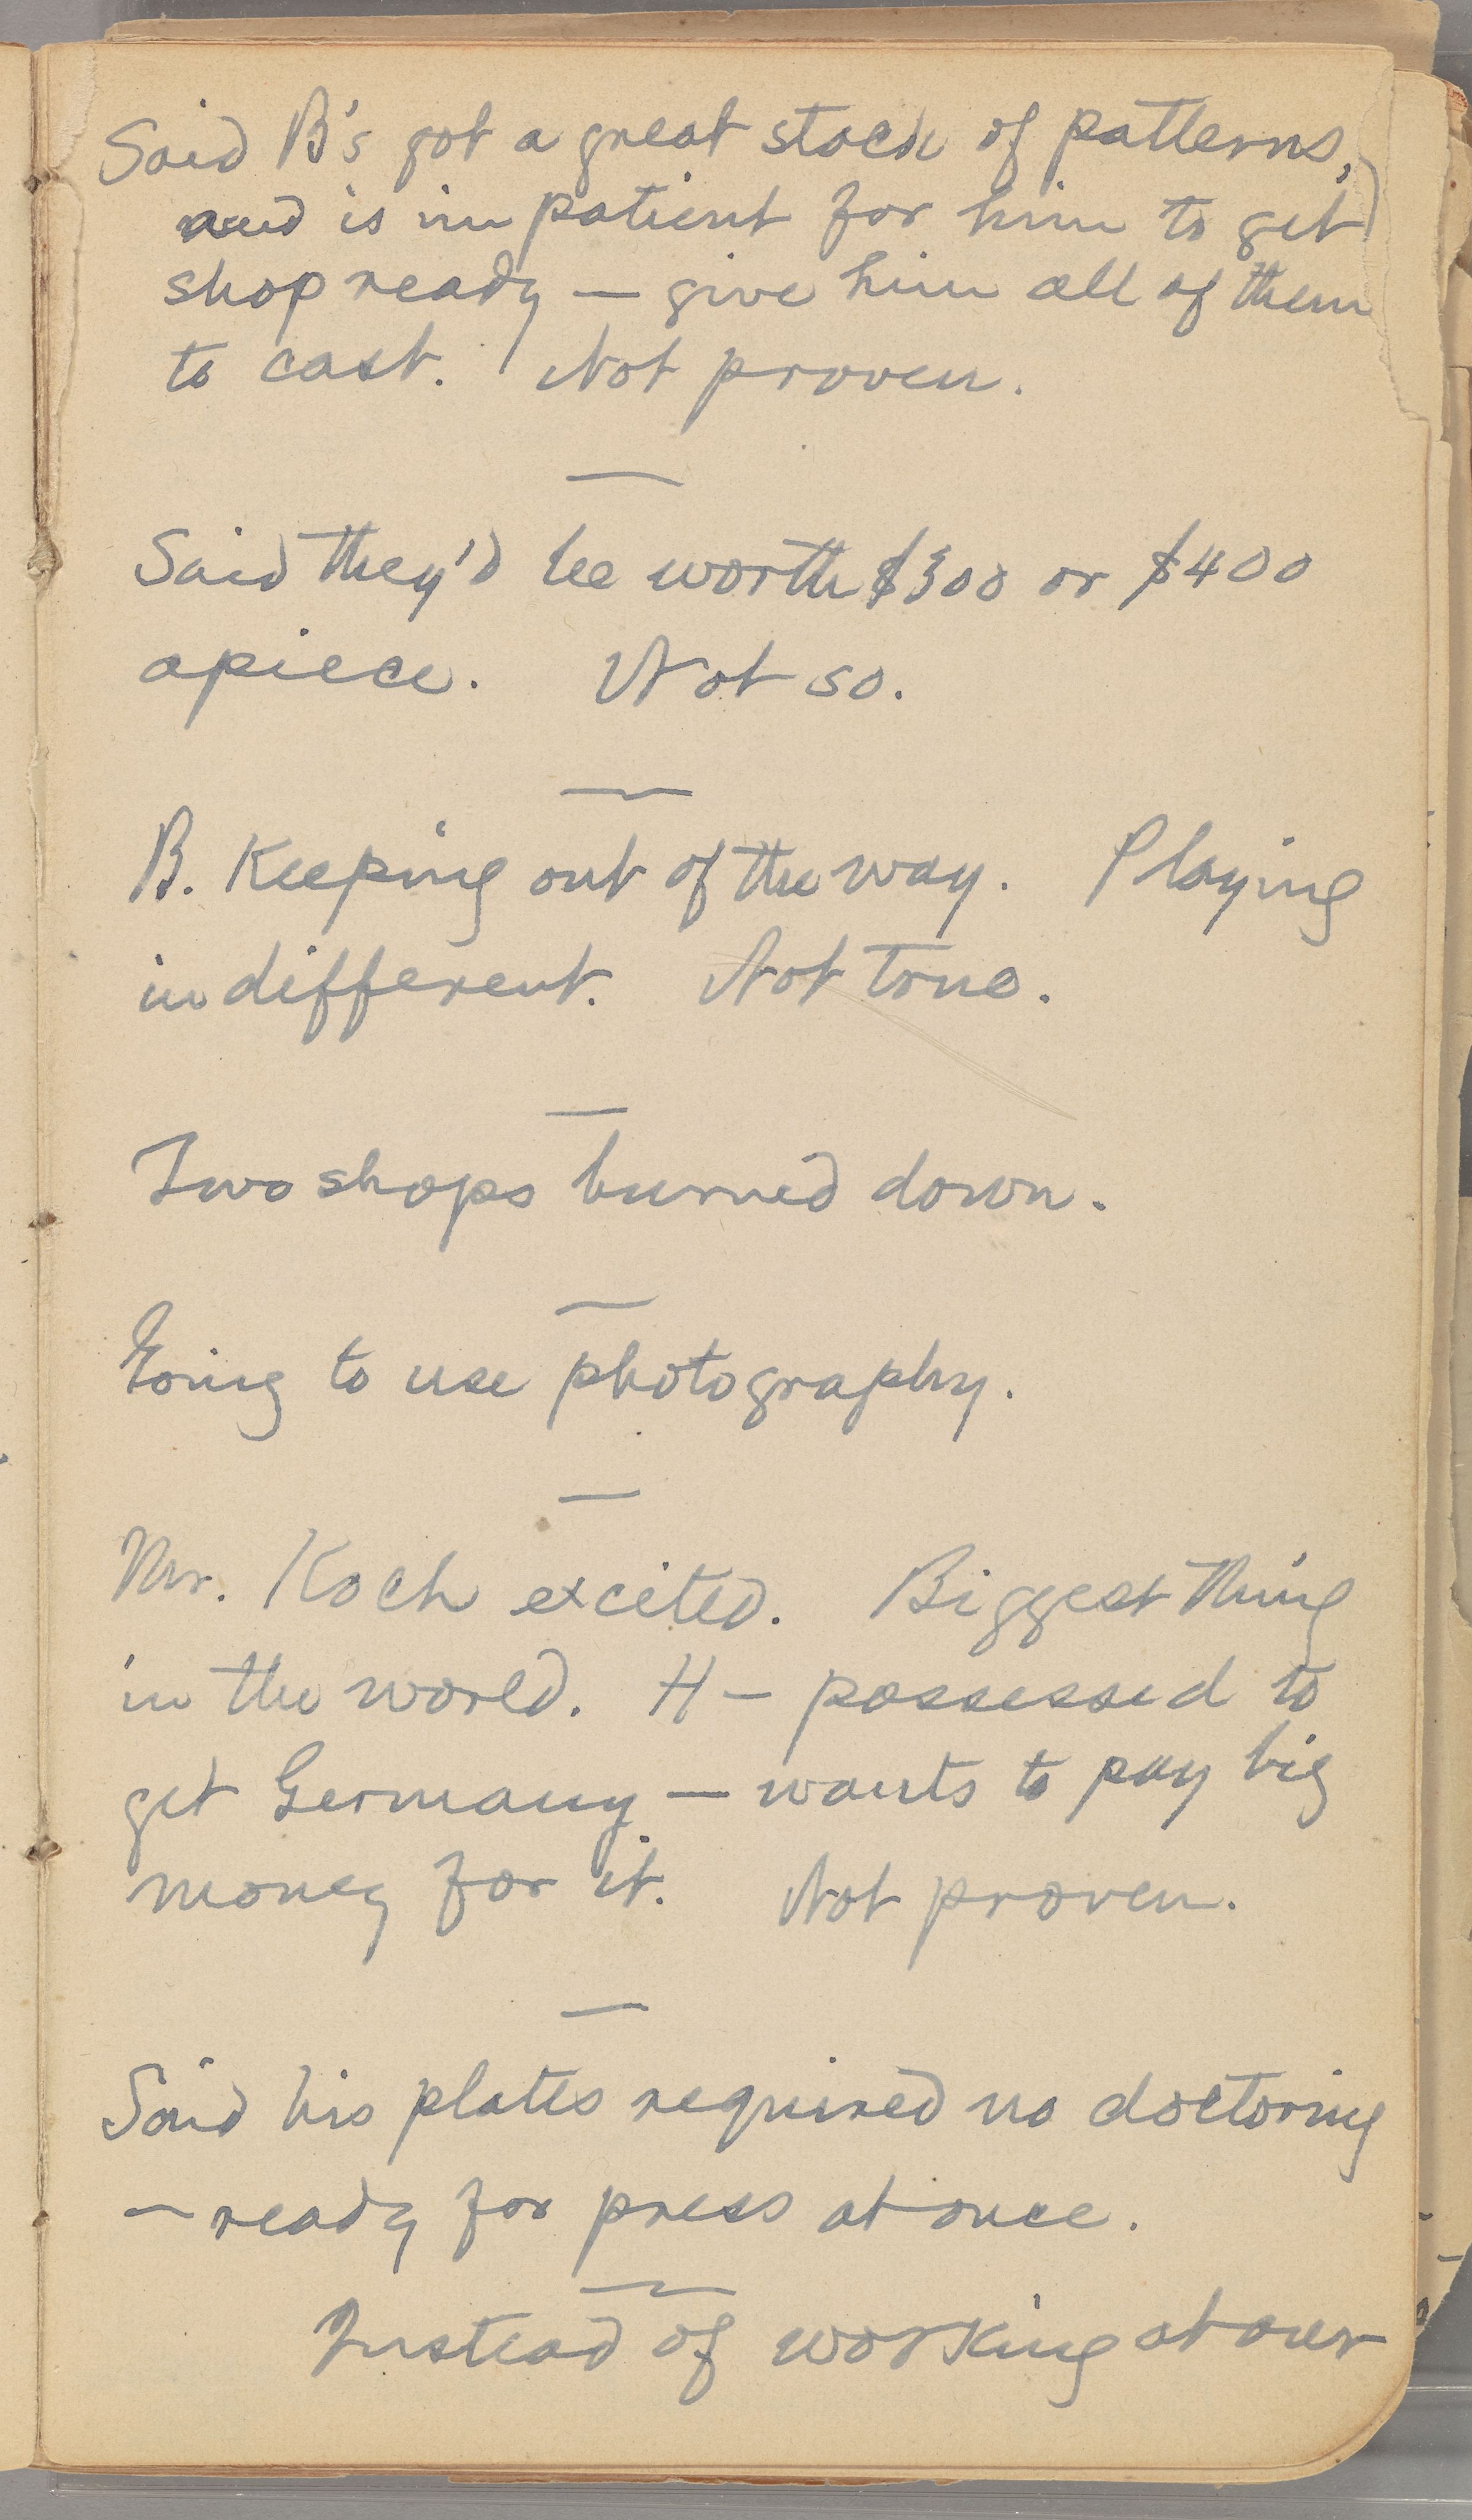 Said B's got a great stock of patterns,
and is impatient for him to get
shop ready — give him all of them
to cast. Not proven.
—
Said they'd be worth $300 or $400
apiece. Not so.
—
B. Keeping out of the way. Playing
indifferent. Not true.
—
Two shops burned down.
—
Going to use photography.
—
Mr. Koch excited. Biggest thing
in the world. H— possessed to
get Germany — wants to pay big
money for it. Not proven.
—
Said his plates required no doctoring
— ready for press at once.
—
Instead of working at our